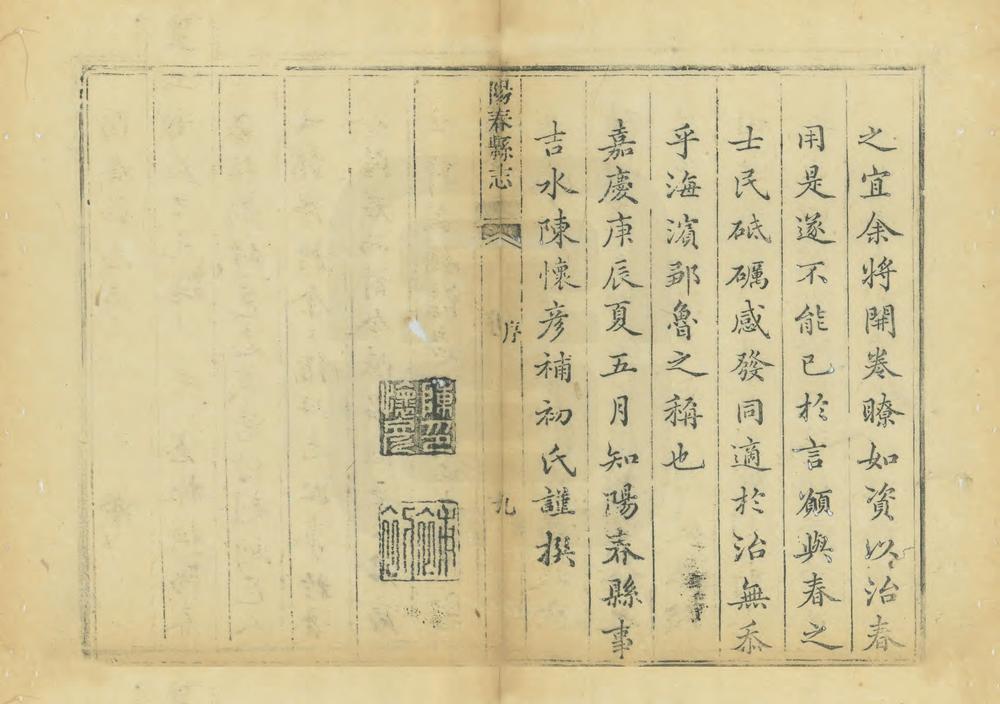 之宜余将開卷瞭如資以治春
用是遂不能已於言願與春之
士民砥礪感發同適於治無忝
乎海濱鄒魯之稱也
嘉慶庚辰夏五月知陽春縣事
吉水陳懷彦補初氏謹撰
陽春縣志
序
九